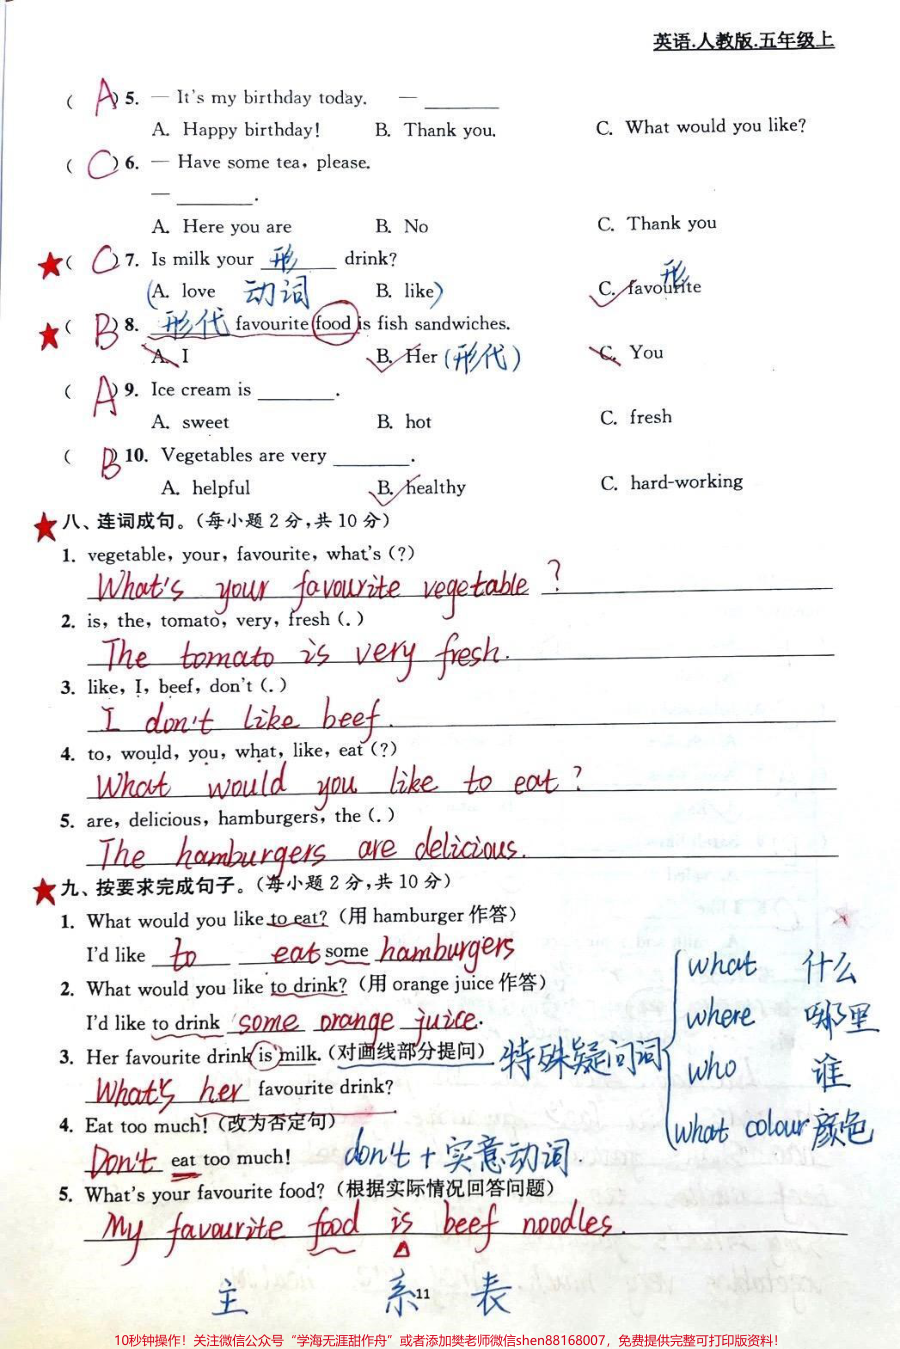 英语.人教版.五年级上
( A ) 5. — It's my birthday today. — ________
A. Happy birthday! B. Thank you. C. What would you like?
( C ) 6. — Have some tea, please.
— ________.
A. Here you are B. No C. Thank you
★ ( C ) 7. Is milk your 形 drink?
(A. love 动词 B. like) C. favourite 形
★ ( B ) 8. 形代 favourite food is fish sandwiches.
A. I B. Her (形代) C. You
( A ) 9. Ice cream is ________.
A. sweet B. hot C. fresh
( B ) 10. Vegetables are very ________.
A. helpful B. healthy C. hard-working
★ 八、连词成句。(每小题 2 分,共 10 分)
1. vegetable, your, favourite, what's (?)
What's your favourite vegetable ?
2. is, the, tomato, very, fresh (.)
The tomato is very fresh.
3. like, I, beef, don't (.)
I don't like beef.
4. to, would, you, what, like, eat (?)
What would you like to eat ?
5. are, delicious, hamburgers, the (.)
The hamburgers are delicious.
★ 九、按要求完成句子。(每小题 2 分,共 10 分)
1. What would you like to eat? (用 hamburger 作答)
I'd like to eat some hamburgers
2. What would you like to drink? (用 orange juice 作答)
I'd like to drink some orange juice.
3. Her favourite drink is milk. (对画线部分提问) 特殊疑问词
What's her favourite drink?
what 什么
where 哪里
who 谁
what colour 颜色
4. Eat too much! (改为否定句)
Don't eat too much! don't + 实意动词.
5. What's your favourite food? (根据实际情况回答问题)
My favourite food is beef noodles.
主 系 表
11
10秒钟操作！关注微信公众号“学海无涯甜作舟”或者添加樊老师微信shen88168007，免费提供完整可打印版资料！